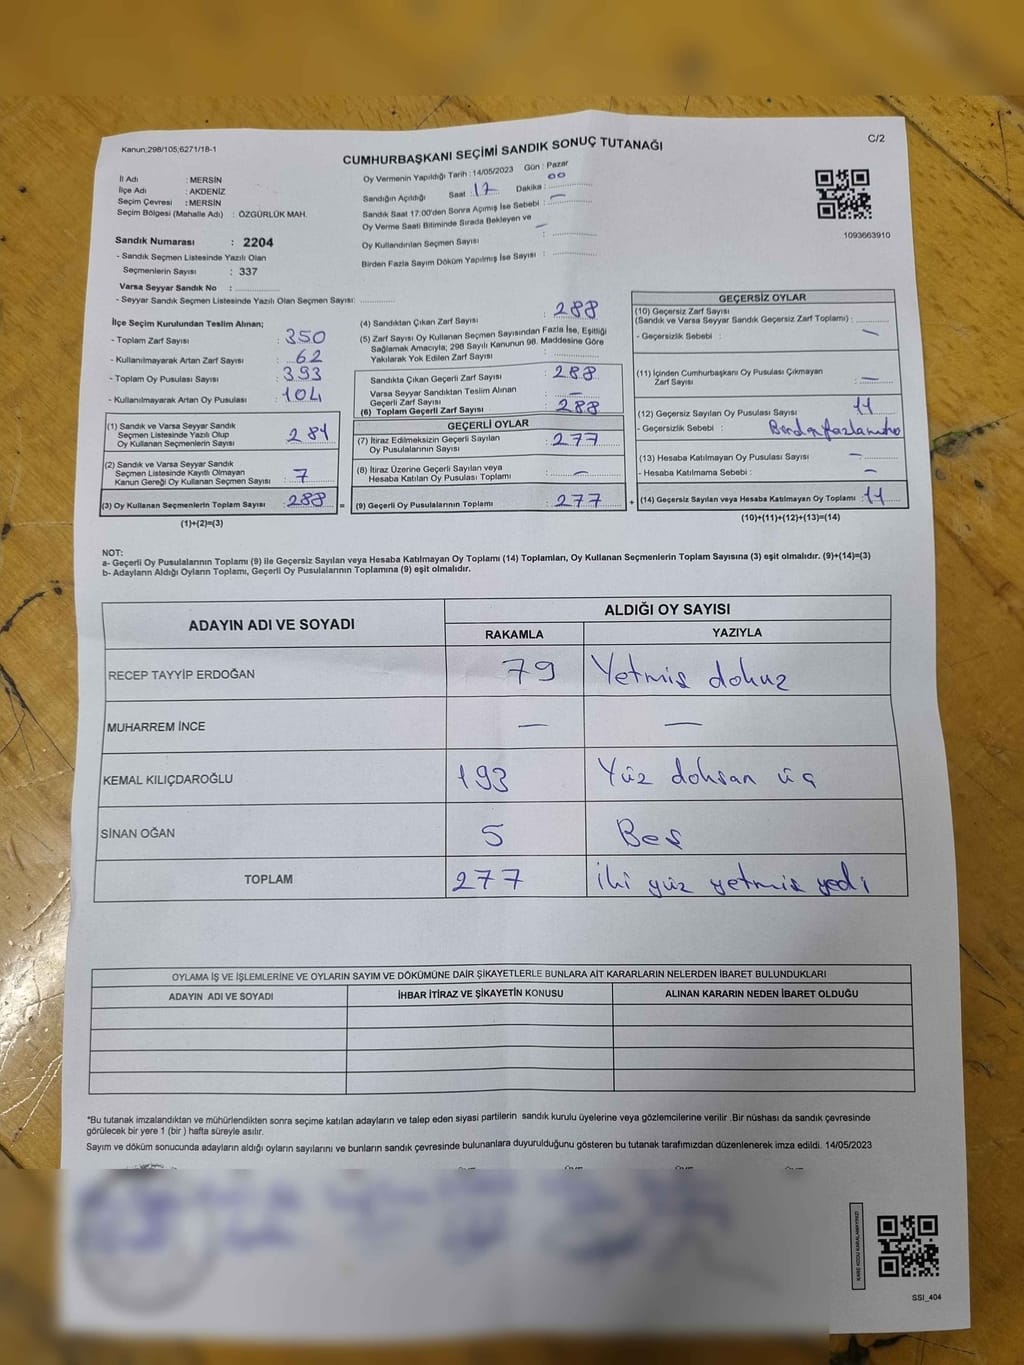 Kanun;298/105;6271/18-1
C/2
CUMHURBAŞKANI SEÇİMİ SANDIK SONUÇ TUTANAĞI
İl Adı : MERSİN
İlçe Adı : AKDENİZ
Seçim Çevresi : MERSİN
Seçim Bölgesi (Mahalle Adı) : ÖZGÜRLÜK MAH.
Sandık Numarası : 2204
- Sandık Seçmen Listesinde Yazılı Olan
Seçmenlerin Sayısı : 337
Varsa Seyyar Sandık No : ..............
- Seyyar Sandık Seçmen Listesinde Yazılı Olan Seçmen Sayısı: ............
Oy Vermenin Yapıldığı Tarih : 14/05/2023 Gün : Pazar
Sandığın Açıldığı Saat : 17 Dakika : 00
Sandık Saat 17:00'den Sonra Açımış İse Sebebi : —
Oy Verme Saati Bitiminde Sırada Bekleyen ve
Oy Kullandırılan Seçmen Sayısı : —
Birden Fazla Sayım Döküm Yapılmış İse Sayısı : ............
1093663910
İlçe Seçim Kurulundan Teslim Alınan;
- Toplam Zarf Sayısı : 350
- Kullanılmayarak Artan Zarf Sayısı : 62
- Toplam Oy Pusulası Sayısı : 393
- Kullanılmayarak Artan Oy Pusulası : 104
(1) Sandık ve Varsa Seyyar Sandık
Seçmen Listesinde Yazılı Olup
Oy Kullanan Seçmenlerin Sayısı : 281
(2) Sandık ve Varsa Seyyar Sandık
Seçmen Listesinde Kayıtlı Olmayan
Kanun Gereği Oy Kullanan Seçmen Sayısı : 7
(3) Oy Kullanan Seçmenlerin Toplam Sayısı : 288 =
(1)+(2)=(3)
(4) Sandıktan Çıkan Zarf Sayısı : 288
(5) Zarf Sayısı Oy Kullanan Seçmen Sayısından Fazla İse, Eşitliği
Sağlamak Amacıyla; 298 Sayılı Kanunun 98. Maddesine Göre
Yakılarak Yok Edilen Zarf Sayısı : ............
Sandıkta Çıkan Geçerli Zarf Sayısı : 288
Varsa Seyyar Sandıktan Teslim Alınan
Geçerli Zarf Sayısı : —
(6) Toplam Geçerli Zarf Sayısı : 288
GEÇERLİ OYLAR
(7) İtiraz Edilmeksizin Geçerli Sayılan
Oy Pusulalarının Sayısı : 277
(8) İtiraz Üzerine Geçerli Sayılan veya
Hesaba Katılan Oy Pusulası Toplamı : —
(9) Geçerli Oy Pusulalarının Toplamı : 277 +
GEÇERSİZ OYLAR
(10) Geçersiz Zarf Sayısı
(Sandık ve Varsa Seyyar Sandık Geçersiz Zarf Toplamı) : ............
- Geçersizlik Sebebi : —
(11) İçinden Cumhurbaşkanı Oy Pusulası Çıkmayan
Zarf Sayısı : —
(12) Geçersiz Sayılan Oy Pusulası Sayısı : 11
- Geçersizlik Sebebi :
(13) Hesaba Katılmayan Oy Pusulası Sayısı : —
- Hesaba Katılmama Sebebi : —
(14) Geçersiz Sayılan veya Hesaba Katılmayan Oy Toplamı : 11
(10)+(11)+(12)+(13)=(14)
NOT:
a- Geçerli Oy Pusulalarının Toplamı (9) ile Geçersiz Sayılan veya Hesaba Katılmayan Oy Toplamı (14) Toplamları, Oy Kullanan Seçmenlerin Toplam Sayısına (3) eşit olmalıdır. (9)+(14)=(3)
b- Adayların Aldığı Oyların Toplamı, Geçerli Oy Pusulalarının Toplamına (9) eşit olmalıdır.
ADAYIN ADI VE SOYADI ALDIĞI OY SAYISI
RAKAMLA YAZIYLA
RECEP TAYYİP ERDOĞAN 79 Yetmiş dokuz
MUHARREM İNCE — —
KEMAL KILIÇDAROĞLU 193 Yüz doksan üç
SİNAN OĞAN 5 Beş
TOPLAM 277 İki yüz yetmiş yedi
OYLAMA İŞ VE İŞLEMLERİNE VE OYLARIN SAYIM VE DÖKÜMÜNE DAİR ŞİKAYETLERLE BUNLARA AİT KARARLARIN NELERDEN İBARET BULUNDUKLARI
ADAYIN ADI VE SOYADI İHBAR İTİRAZ VE ŞİKAYETİN KONUSU ALINAN KARARIN NEDEN İBARET OLDUĞU
*Bu tutanak imzalandıktan ve mühürlendikten sonra seçime katılan adayların ve talep eden siyasi partilerin sandık kurulu üyelerine veya gözlemcilerine verilir .Bir nüshası da sandık çevresinde
görülecek bir yere 1 (bir ) hafta süreyle asılır.
Sayım ve döküm sonucunda adayların aldığı oyların sayılarını ve bunların sandık çevresinde bulunanlara duyurulduğunu gösteren bu tutanak tarafımızdan düzenlenerek imza edildi. 14/05/2023
KARE KODU KARALAMAYINIZ!
SSI_404